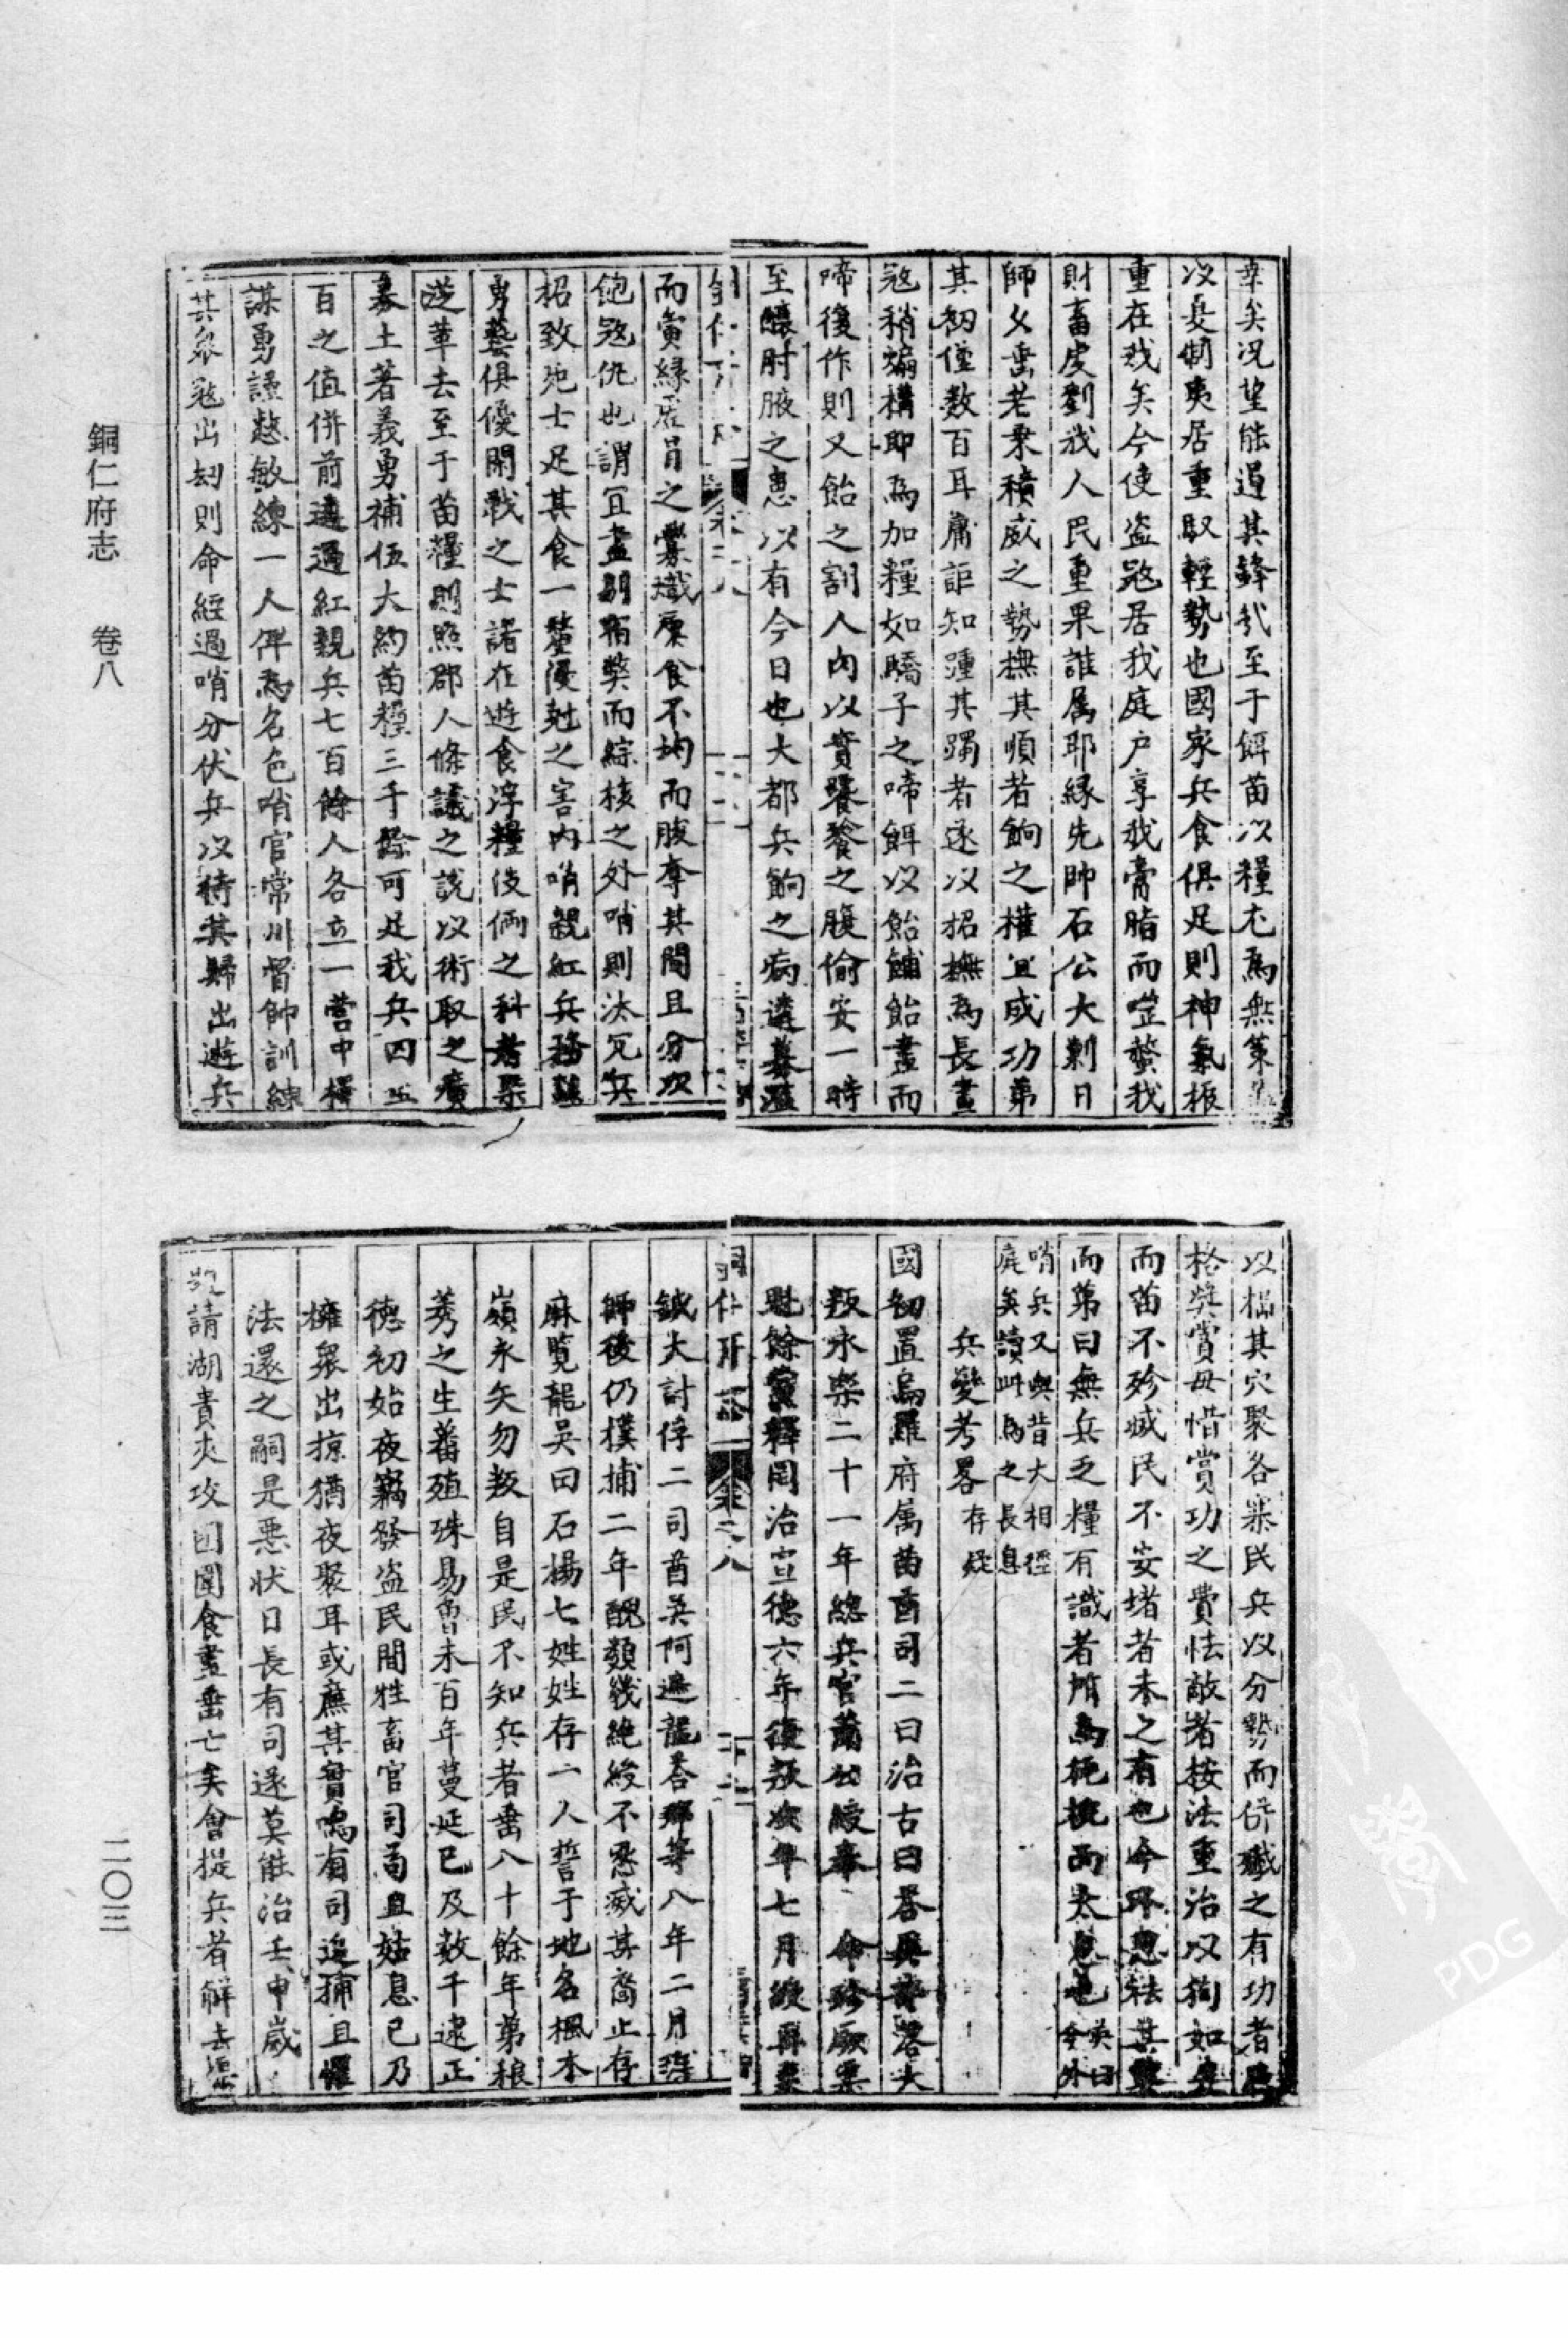 幸矣况望能遏其鋒哉至于餌苗以糧尤為無策
以夏制夷居重馭輕勢也國家兵食俱足則神氣振
重在我矣今使盗寇居我庭户享我膏脂而噬螫我
財畜虔劉我人民重果誰属耶縁先帥石公大剿日
師乂耋老乗積威之勢撫其順者餉之權且成功第
其初僅数百耳庸詎知踵其躅者遂以招撫為長畫
冦稍煽構即為加糧如驕子之啼餌以飴餔飴盡而
啼復作則又飴之割人肉以實饕餮之腹偷安一時
至釀肘腋之患以有今日也大都兵餉之病濫募濫
而夤縁乕冐之
食不均而腹奪其間且分次
飽冦仇也謂宜盡剔宿獘而綜核之外哨則汰冗兵
招致死士足其食一
之害内哨親紅兵務
勇藝俱優閑戰之士諸在逰食浮糧伎倆之科者
革去至于苗糧則照郡人條議之説以術取之
募土著義勇補伍大約苗糧三千餘可足我兵四五
百之值併前
過紅親兵七百餘人各立一營中擇
謀勇謹慤敏練一人俾為名色哨官常川督帥訓練
其衆冦出刼則命經過哨分伏兵以待其歸出遊兵
以搗其穴聚各寨民兵以分勢而併殱之有功者
格奬賞毋惜賞功之費怯敵者按法重治以狥如
而苗不殄滅民不安堵者未之有也今不思
其
而第曰無兵乏糧有識者所為扼捥而太息也
哨兵又與昔大相徑
庭矣讀此為之長息
兵變考畧存疑
國初置烏羅府属苗酋司二曰治古曰荅
叛永樂二十一年總兵官蕭公綬奉 命殄厥渠
魁餘黨釋罔治宣德六年復叛次年七月綬再
鉞大討俘二司酋吳阿
龍荅
等八年二月
師後仍撲捕二年醜類幾絶綬不忍滅其裔止存
麻覧龍吳田石楊七姓姓存一人誓于地名楓木
嶺永矢勿叛自是民不知兵者耋八十餘年苐稂
莠之生蕃殖殊易曾未百年蔓延已及数千逮正
德初始夜竊發盗民間牲畜官司苟且姑息已乃
擁衆出掠猶夜聚耳或廉其實鳴有司追捕且懼
法還之嗣是悪状日長有司遂莫能治壬申歲
請湖貴夾攻囙圍食盡垂亡矣會提兵者解去
銅仁府志 卷八
二〇三